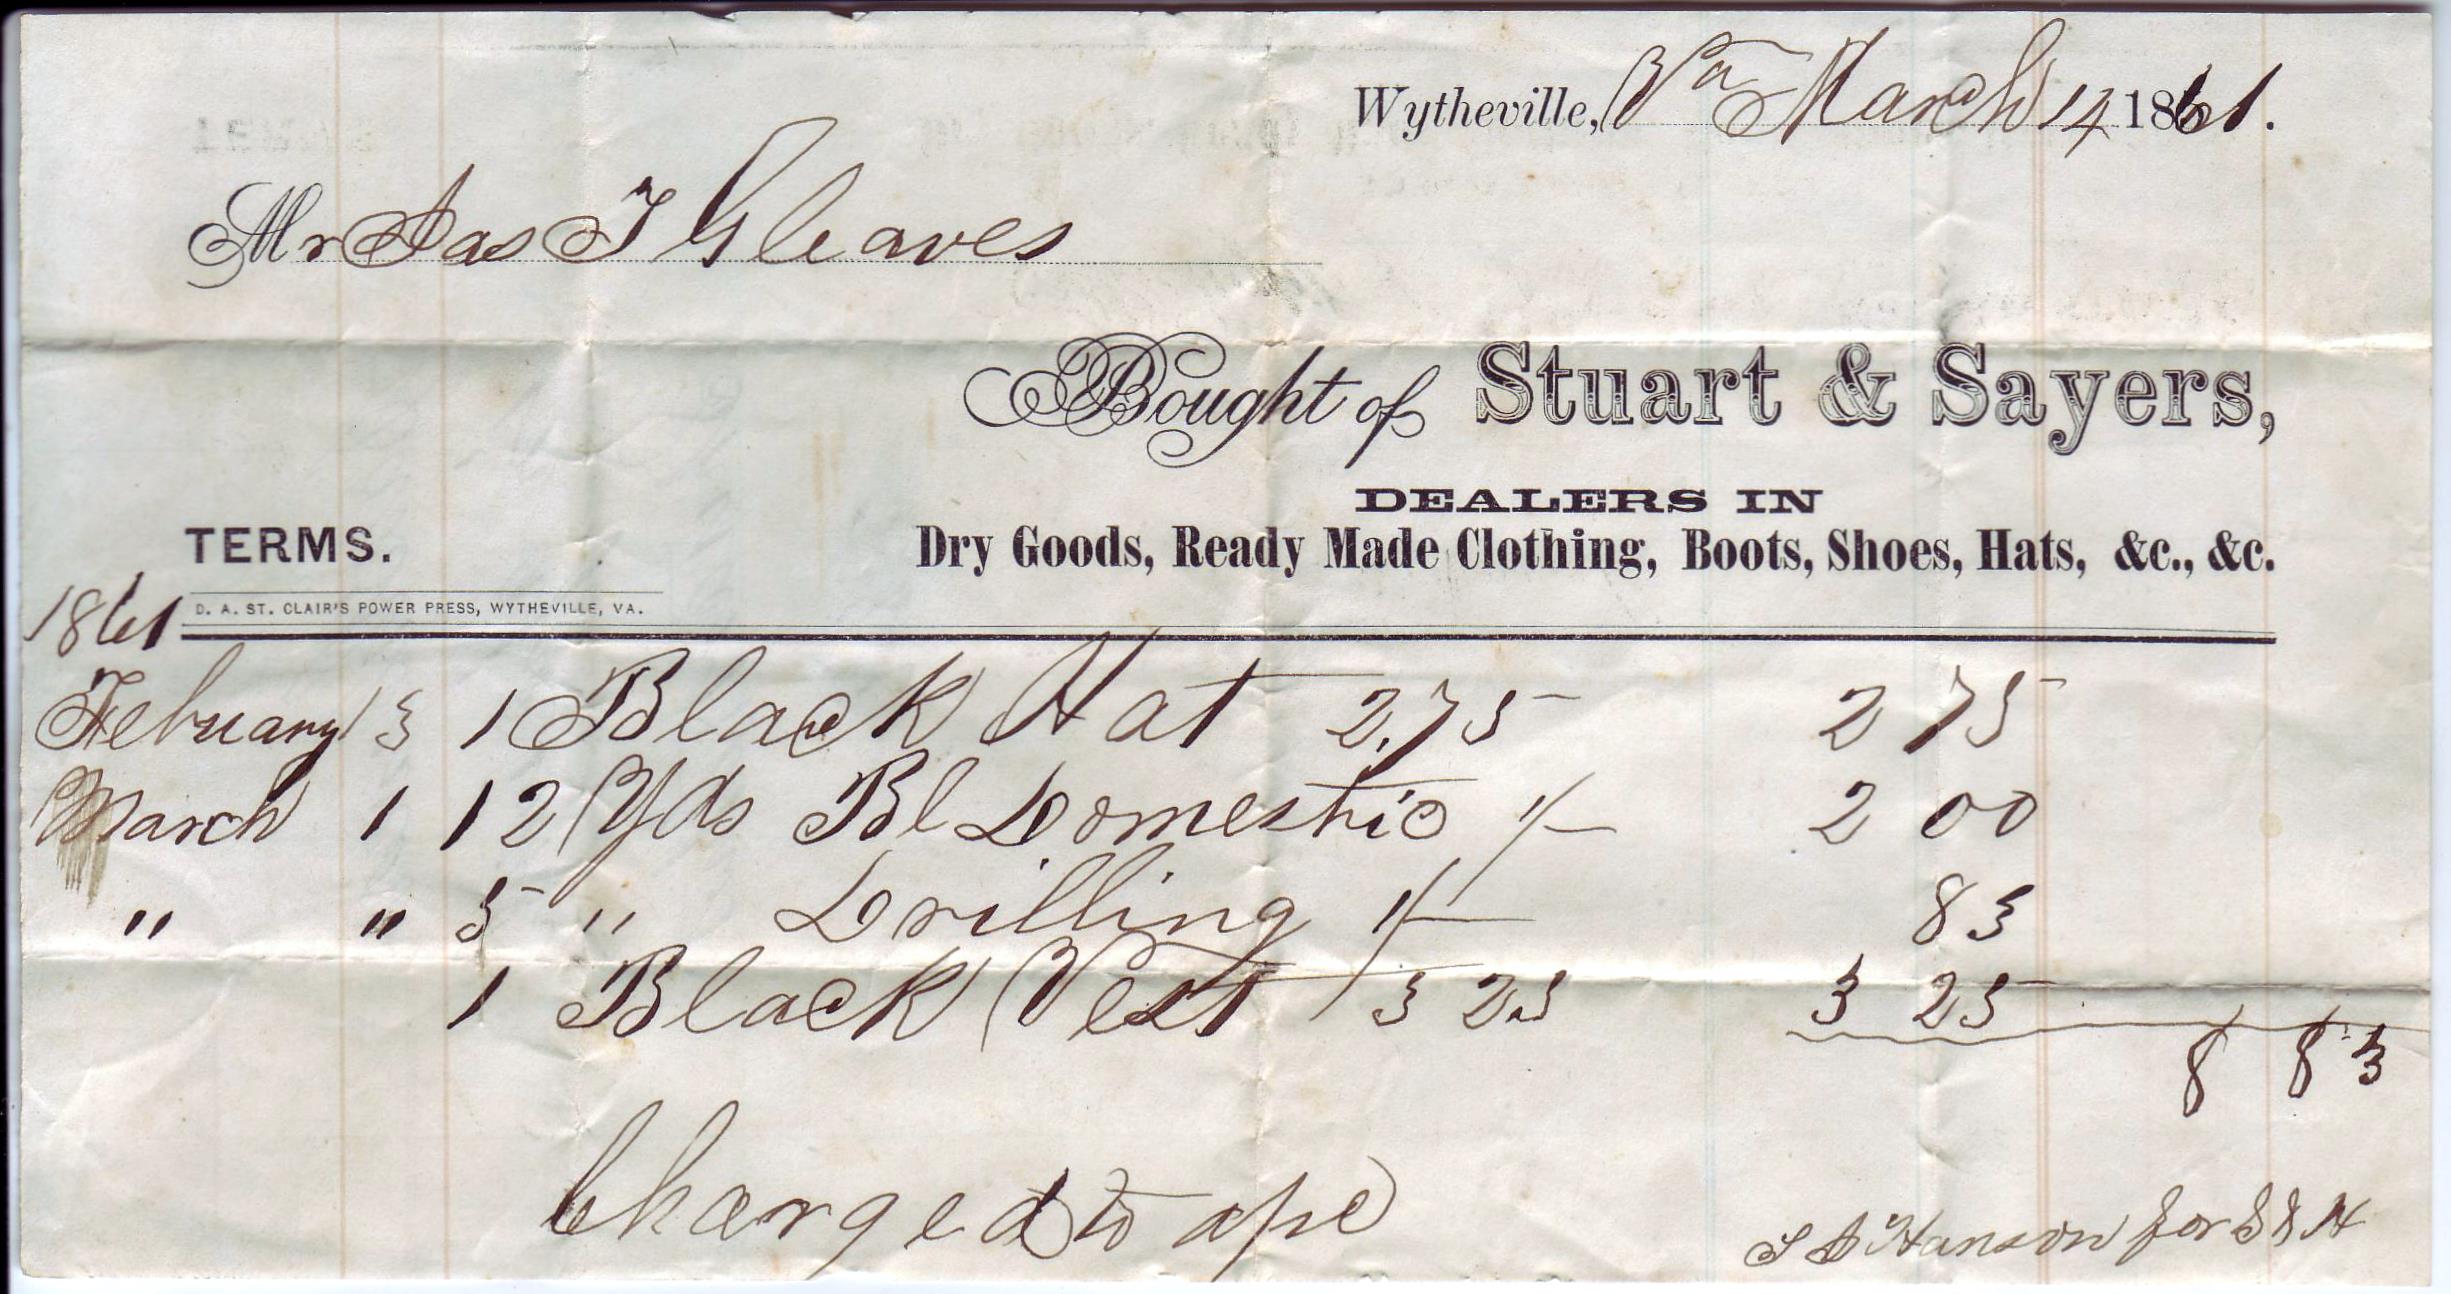 Wytheville, Va March 14 1861.
Mr Jas T Gleaves
Bought of Stuart & Sayers,
DEALERS IN
TERMS. Dry Goods, Ready Made Clothing, Boots, Shoes, Hats, &c., &c.
1861 D. A. ST. CLAIR'S POWER PRESS, WYTHEVILLE, VA.
Febuary 13 1 Black Hat 2.75 2 75
March 1 12 Yds Bl Domestic 1/- 2 00
" " 5 " Drilling 1/- 83
1 Black Vest 3 25 3 25
8 83
Charged to
Hanson for